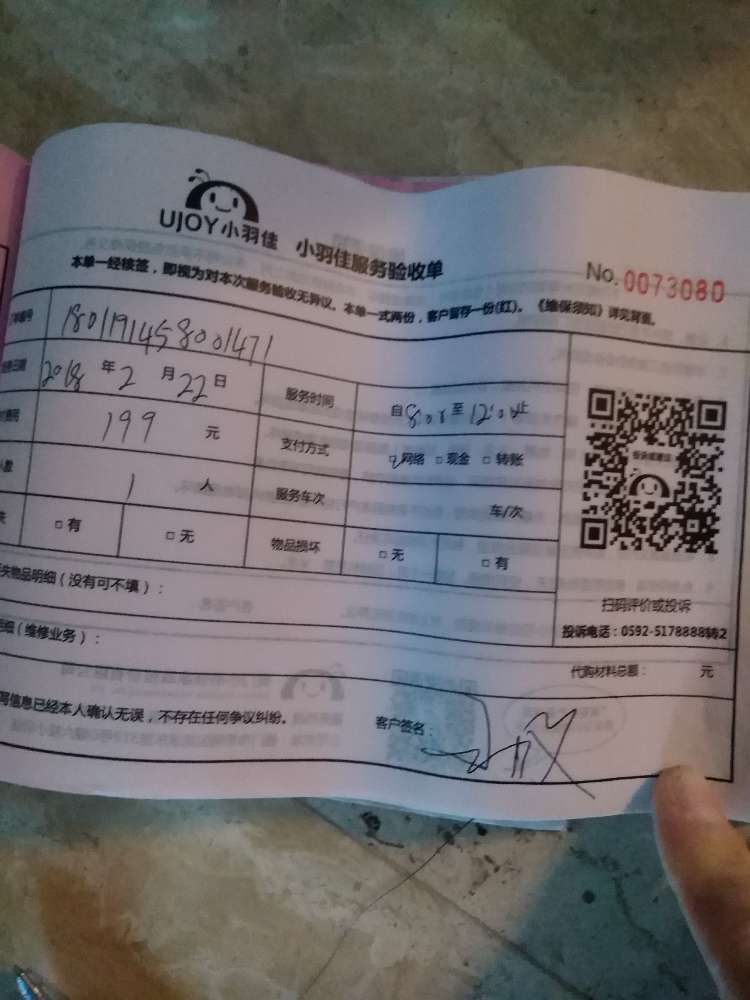 UJOY小羽佳 小羽佳服务验收单
No. 0073080
本单一经核签，即视为对本次服务验收无异议。本单一式两份，客户留存一份(红)。《维保须知》详见背面。
编号 1801191458001471
日期 2018 年 2 月 22 日 服务时间 自 8:00 至 12:00 止
费用 199 元 支付方式 ☑网络 □现金 □转账
人数 1 人 服务车次 车/次
失 □有 □无 物品损坏 □无 □有
扫码评价或投诉
投诉电话：0592-5178888转2
失物品明细（没有可不填）：
明细（维修业务）： 代购材料总额： 元
写信息已经本人确认无误，不存在任何争议纠纷。 客户签名：